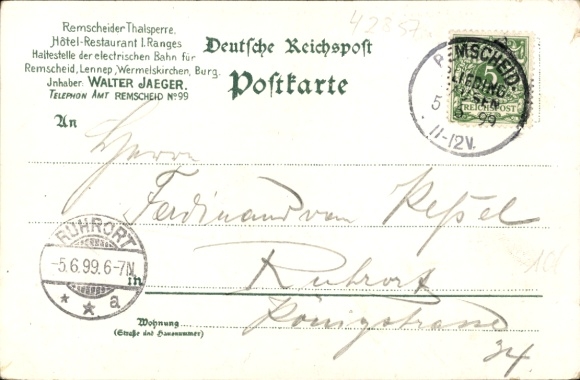 42357
Remscheider Thalsperre.
Hôtel-Restaurant I. Ranges
Haltestelle der electrischen Bahn für
Remscheid, Lennep, Wermelskirchen, Burg.
Jnhaber WALTER JAEGER.
TELEPHON AMT REMSCHEID No 99
Deutsche Reichspost
Postkarte
REMSCHEID
5 6 99
11-12V.
5
REICHSPOST
An
Herrn
Ferdinand van Peßel
RUHRORT
-5.6.99.6-7N.
a
in
Ruhrort
Wohnung
(Straße und Hausnummer)
Königstrasse
34.